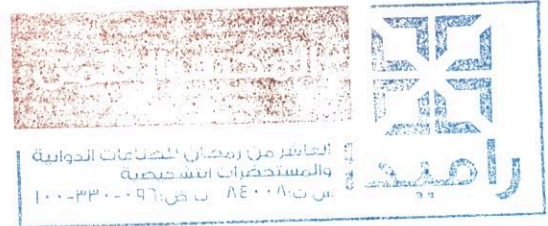 راميد
العاشر من رمضان للصناعات الدوائية
والمستحضرات التشخيصية
س ت: ٨٤٠٠٨ ب ض: ٠٩٦-٣٣٠-١٠٠